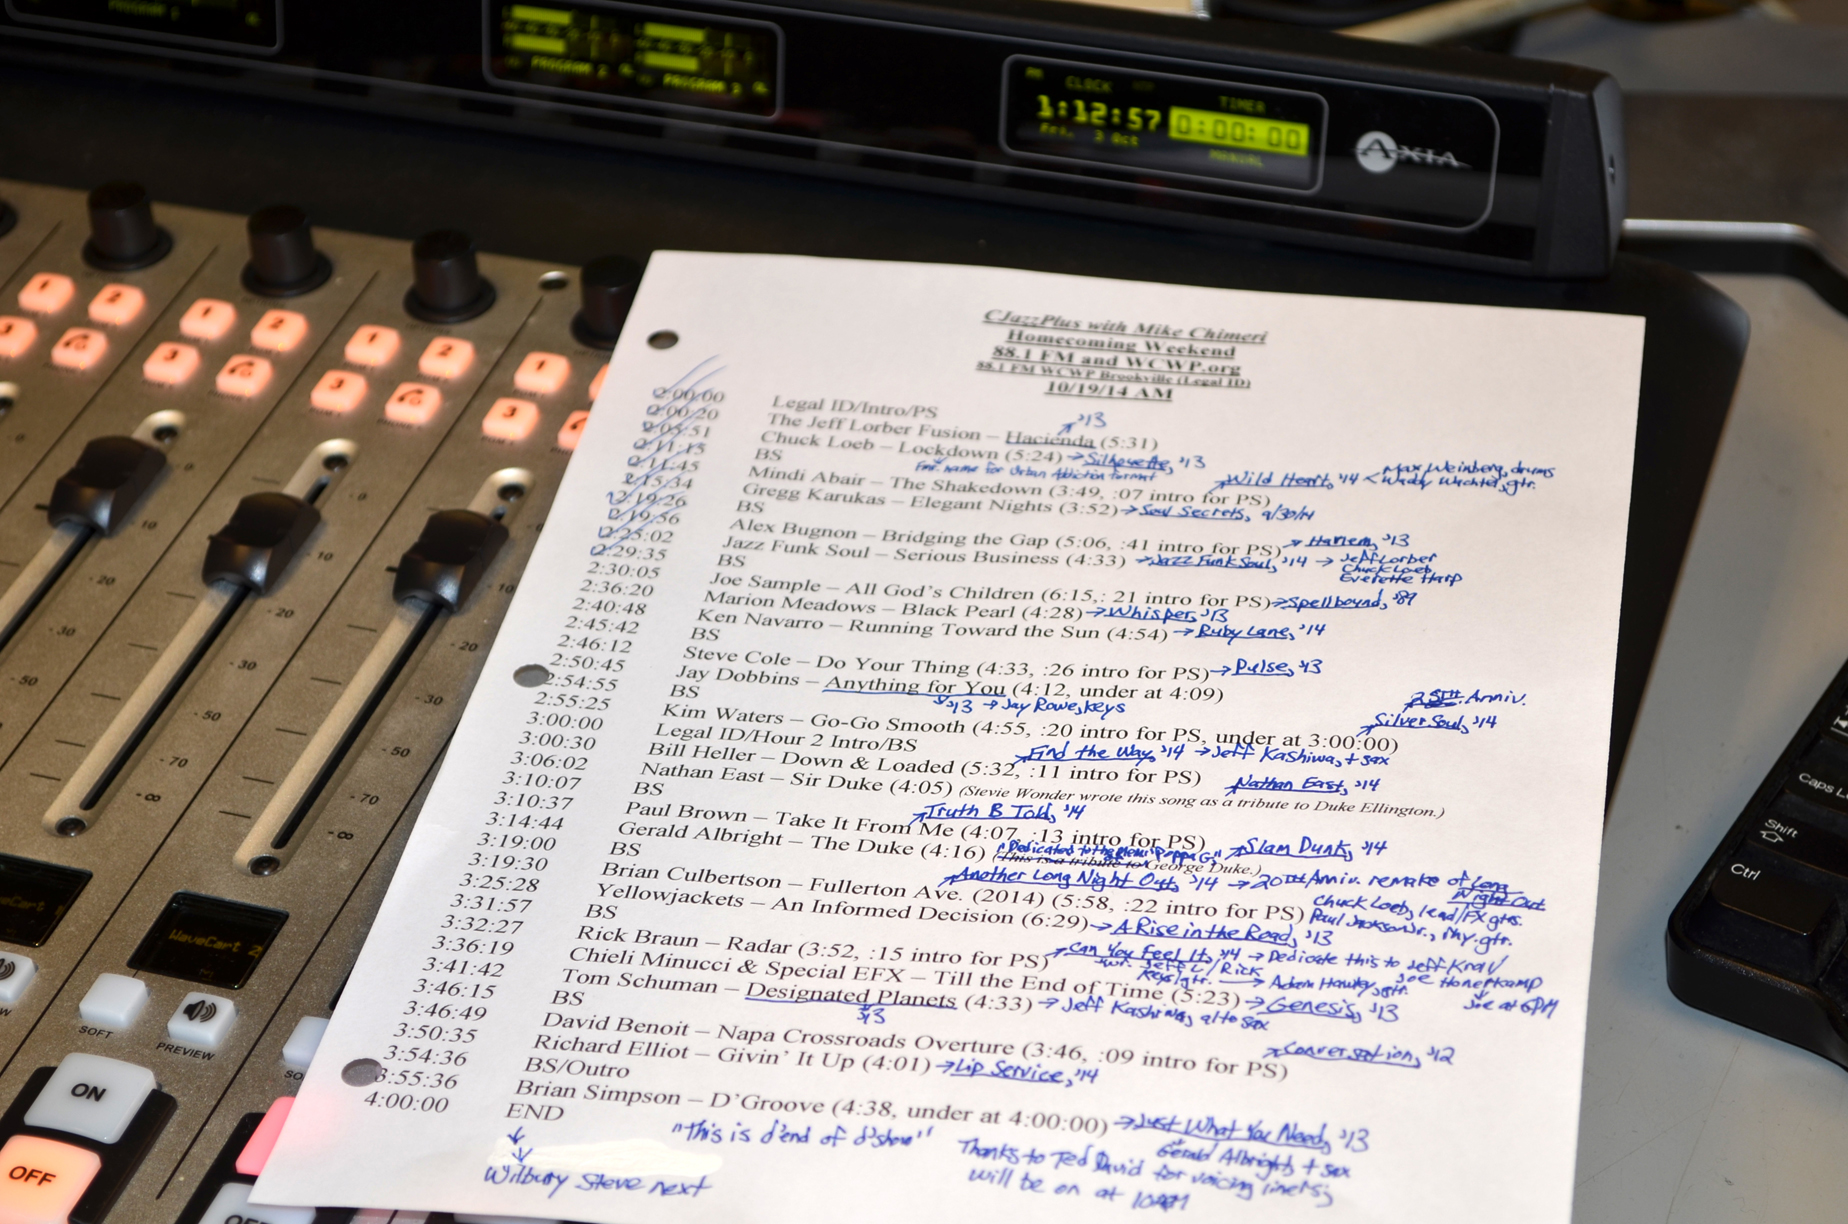 PROGRAM 2
PROGRAM 3
CLOCK
TIMER
1:12:57
0:00:00
Fri, 3 Oct
MANUAL
AXIA
CJazzPlus with Mike Chimeri
Homecoming Weekend
88.1 FM and WCWP.org
88.1 FM WCWP Brookville (Legal ID)
10/19/14 AM
2:00:00 Legal ID/Intro/PS
2:00:20 The Jeff Lorber Fusion – Hacienda (5:31) '13
2:05:51 Chuck Loeb – Lockdown (5:24) → Silhouette, '13
2:11:15 BS
Fmr. name for Urban Addiction format
2:11:45 Mindi Abair – The Shakedown (3:49, :07 intro for PS) Wild Heart, '14 < Max Weinberg, drums
Waddy Wachtel, gtr.
2:15:34 Gregg Karukas – Elegant Nights (3:52) → Soul Secrets, 9/30/14
2:19:26 BS
2:19:56 Alex Bugnon – Bridging the Gap (5:06, :41 intro for PS) → Harlem, '13
2:25:02 Jazz Funk Soul – Serious Business (4:33) → Jazz Funk Soul, '14 → Jeff Lorber
Chuck Loeb
Everette Harp
2:29:35 BS
2:30:05 Joe Sample – All God's Children (6:15, : 21 intro for PS) → Spellbound, '89
2:36:20 Marion Meadows – Black Pearl (4:28) → Whisper, '13
2:40:48 Ken Navarro – Running Toward the Sun (4:54) → Ruby Lane, '14
2:45:42 BS
2:46:12 Steve Cole – Do Your Thing (4:33, :26 intro for PS) → Pulse, '13
2:50:45 Jay Dobbins – Anything for You (4:12, under at 4:09)
'13 → Jay Rowe, keys
2:54:55 BS
25TH Anniv.
Silver Soul, '14
2:55:25 Kim Waters – Go-Go Smooth (4:55, :20 intro for PS, under at 3:00:00)
3:00:00 Legal ID/Hour 2 Intro/BS
Find the Way, '14 → Jeff Kashiwa, t sax
3:00:30 Bill Heller – Down & Loaded (5:32, :11 intro for PS)
Nathan East, '14
3:06:02 Nathan East – Sir Duke (4:05) (Stevie Wonder wrote this song as a tribute to Duke Ellington.)
3:10:07 BS
Truth B Told, '14
3:10:37 Paul Brown – Take It From Me (4:07, :13 intro for PS)
3:14:44 Gerald Albright – The Duke (4:16) (This is a tribute to George Duke.) → Slam Dunk, '14
3:19:00 BS
Another Long Night Out, '14 → 20TH Anniv. remake of Long Night Out
3:19:30 Brian Culbertson – Fullerton Ave. (2014) (5:58, :22 intro for PS) Chuck Loeb, lead/FX gtrs.
Paul Jackson Jr., rhy. gtr.
3:25:28 Yellowjackets – An Informed Decision (6:29) → A Rise in the Road, '13
3:31:57 BS
3:32:27 Rick Braun – Radar (3:52, :15 intro for PS) Can You Feel It, '14 → Dedicate this to Jeff Kroll
Joe Honerkamp
Joe at 6PM
3:36:19 Chieli Minucci & Special EFX – Till the End of Time (5:23) → Genesis, '13
3:41:42 Tom Schuman – Designated Planets (4:33) → Jeff Kashiwa, alto sax
'13
3:46:15 BS
3:46:49 David Benoit – Napa Crossroads Overture (3:46, :09 intro for PS) Conversation, '12
3:50:35 Richard Elliot – Givin' It Up (4:01) → Lip Service, '14
3:54:36 BS/Outro
3:55:36 Brian Simpson – D'Groove (4:38, under at 4:00:00) → Just What You Need, '13
Gerald Albright, t sax
4:00:00 END
"This is d'end of d'show"
Wilbury Steve next
Thanks to Ted David for voicing liners;
will be on at 10AM
WaveCart 2
SOFT
PREVIEW
ON
OFF
Caps L
Shift
Ctrl